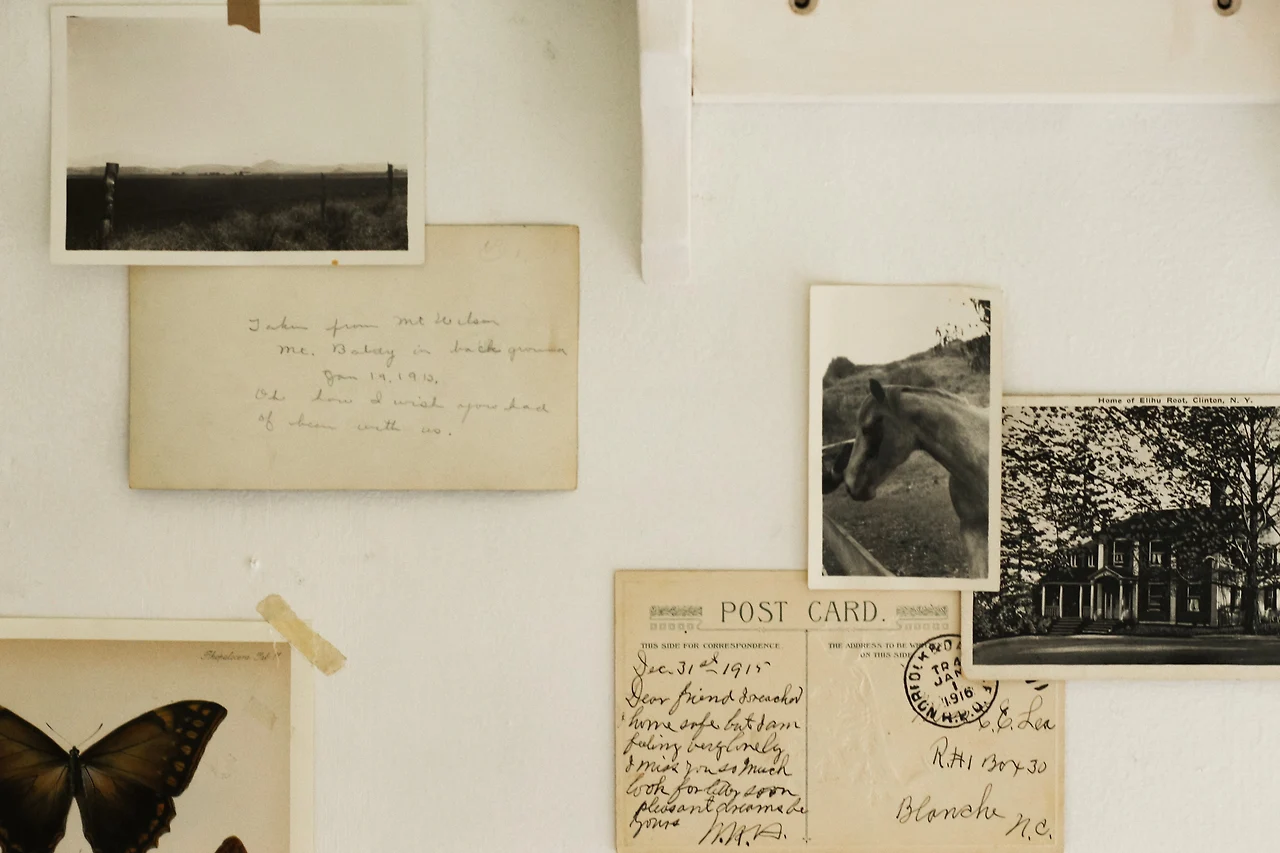 Taken from Mt Wilson
Mt. Baldy in back ground
Jan 19, 1913.
Oh how I wish you had
of been with us.
Home of Elihu Root, Clinton, N. Y.
POST CARD.
THIS SIDE FOR CORRESPONDENCE.
THE ADDRESS TO BE
ON THIS SIDE
Dec. 31st 1915
Dear friend I reached
home safe but I am
feeling very lonely
I miss you so much
look for letter soon
pleasant dreams be
yours
NORFOLK & DA
TRA
JAN
1
1916
R.P.O.
C. E. Lea
R.#1 Box 30
Blanche
N.C.